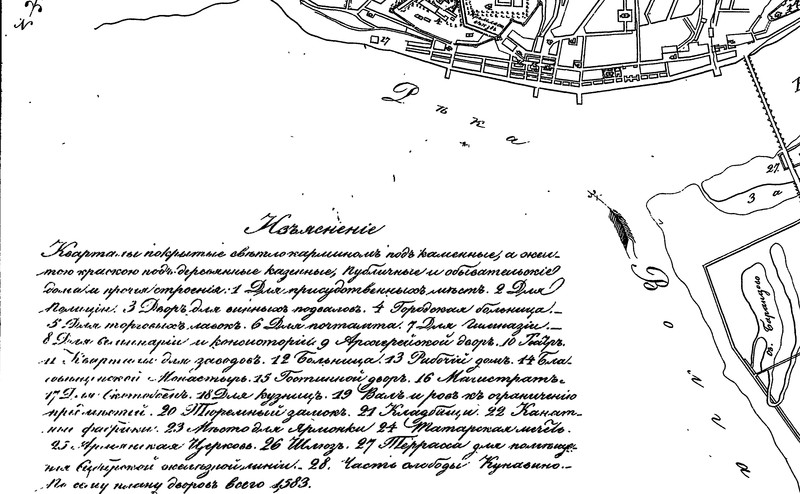 27
Рѣка
27.
3 а
Волга
оз. Барандево
Изъясненiе
Кварталы покрытые свѣтло карминомъ подъ каменные, а жел-
тою краскою подъ деревянные казенные, публичные и обывательскiе
дома и прочия строения: 1 Для присудственныхъ мѣстъ. 2 Для
Полицiи. 3 Дворъ для винныхъ подваловъ. 4 Городская больница.
5 Для торговыхъ лавокъ. 6 Для почтамта. 7 Для Гимназiи.
8 Для семинарiи и консисторiи 9 Архиерейской дворъ. 10 Театръ.
11 Кварталы для заводовъ. 12 Больница. 13 Рабочiй домъ. 14 Бла-
говѣщенской Монастырь. 15 Гостинной дворъ. 16 Магистратъ.
17 Для 18 Для кузницъ. 19 Валъ и ровъ къ ограниченiю
20 Тюремный замокъ. 21 Кладбищи. 22 Канат-
ные фабрики. 23 Мѣсто для Ярмонки 24 Татарская мечеть.
25 Армянская Церковь. 26 Шлюзъ. 27 Терраса для помѣще-
нiя Сибирской желѣзной линiи. 28. Часть слободы Кунавино.
По сему плану дворовъ всего 1,583.